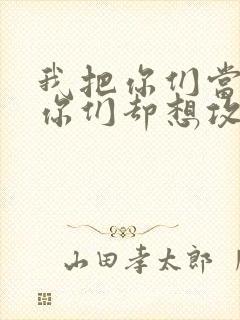 我把你们当
你们却想攻
山田孝太郎